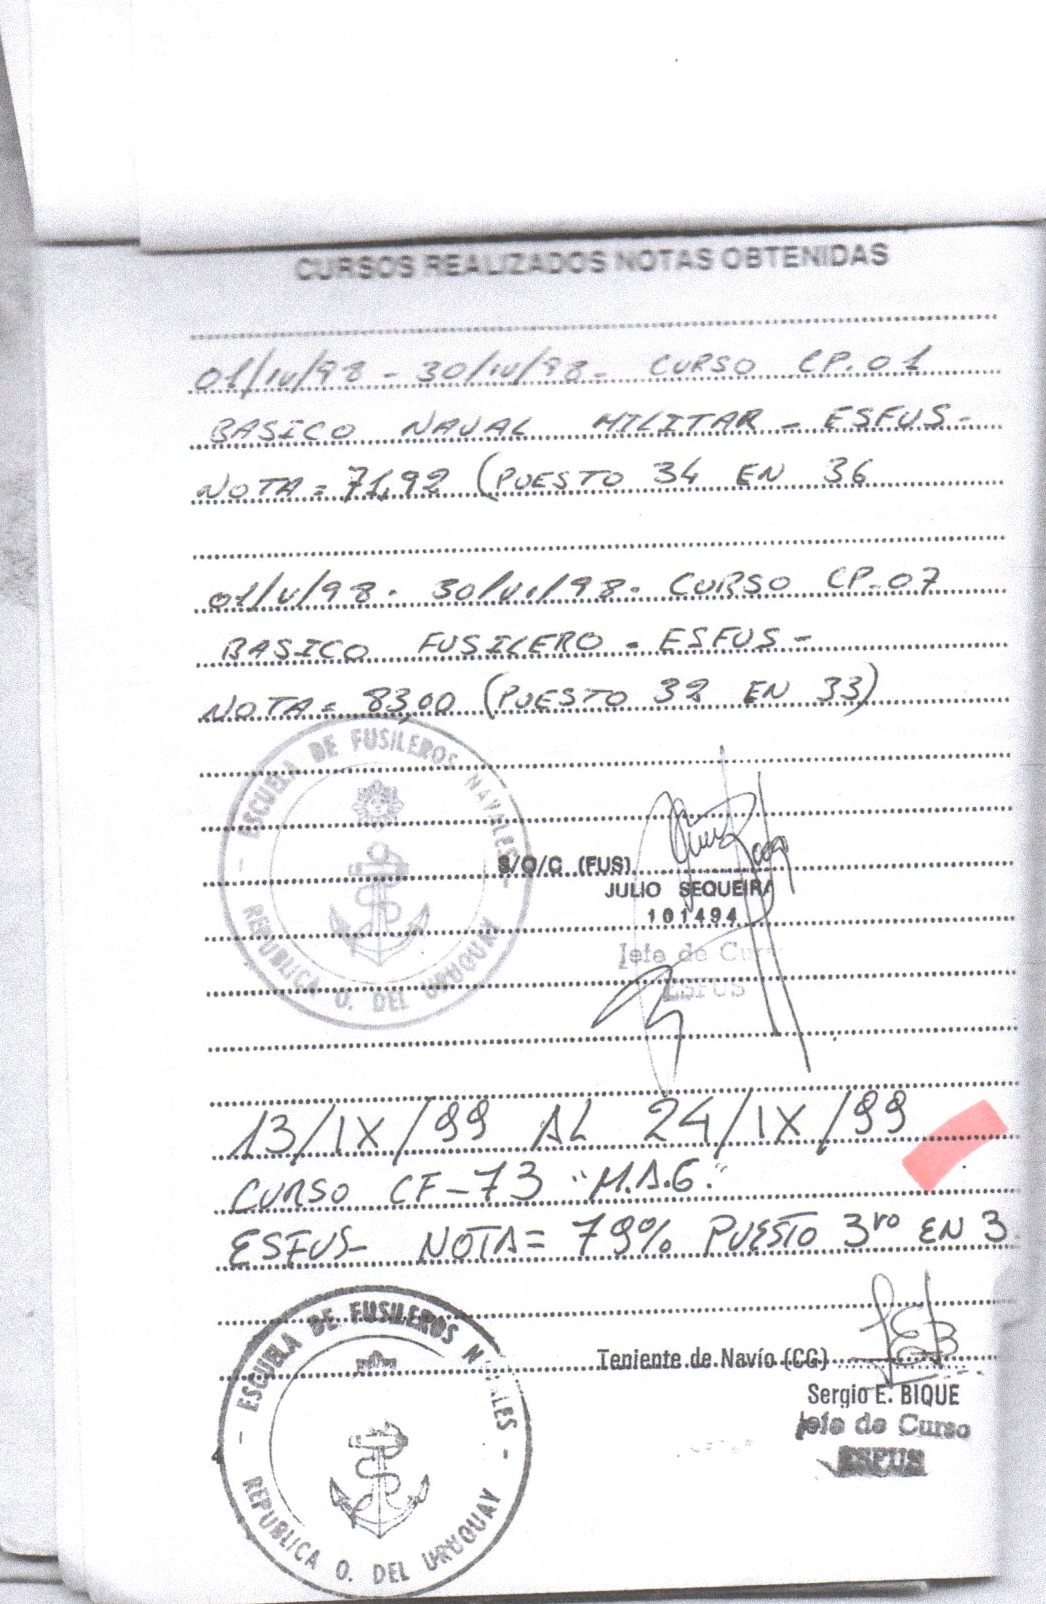 CURSOS REALIZADOS NOTAS OBTENIDAS
01/IV/98 - 30/IV/98 - CURSO CP.01
BASICO NAVAL MILITAR - ESFUS -
NOTA = 71,92 (PUESTO 34 EN 36
01/V/98 - 30/VI/98 - CURSO CP-07
BASICO FUSILERO - ESFUS -
NOTA = 83,00 (PUESTO 32 EN 33)
- ESCUELA DE FUSILEROS NAVALES -
REPUBLICA O. DEL URUGUAY
S/O/C (FUS)
JULIO SEQUEIRA
101494
Jefe de Curso
ESFUS
13/IX/99 AL 24/IX/99
CURSO CF-73 "M.A.G."
ESFUS- NOTA = 79% PUESTO 3ro EN 3
- ESCUELA DE FUSILEROS NAVALES -
REPUBLICA O. DEL URUGUAY
Teniente de Navío (CG)
Sergio E. BIQUE
Jefe de Curso
ESFUS